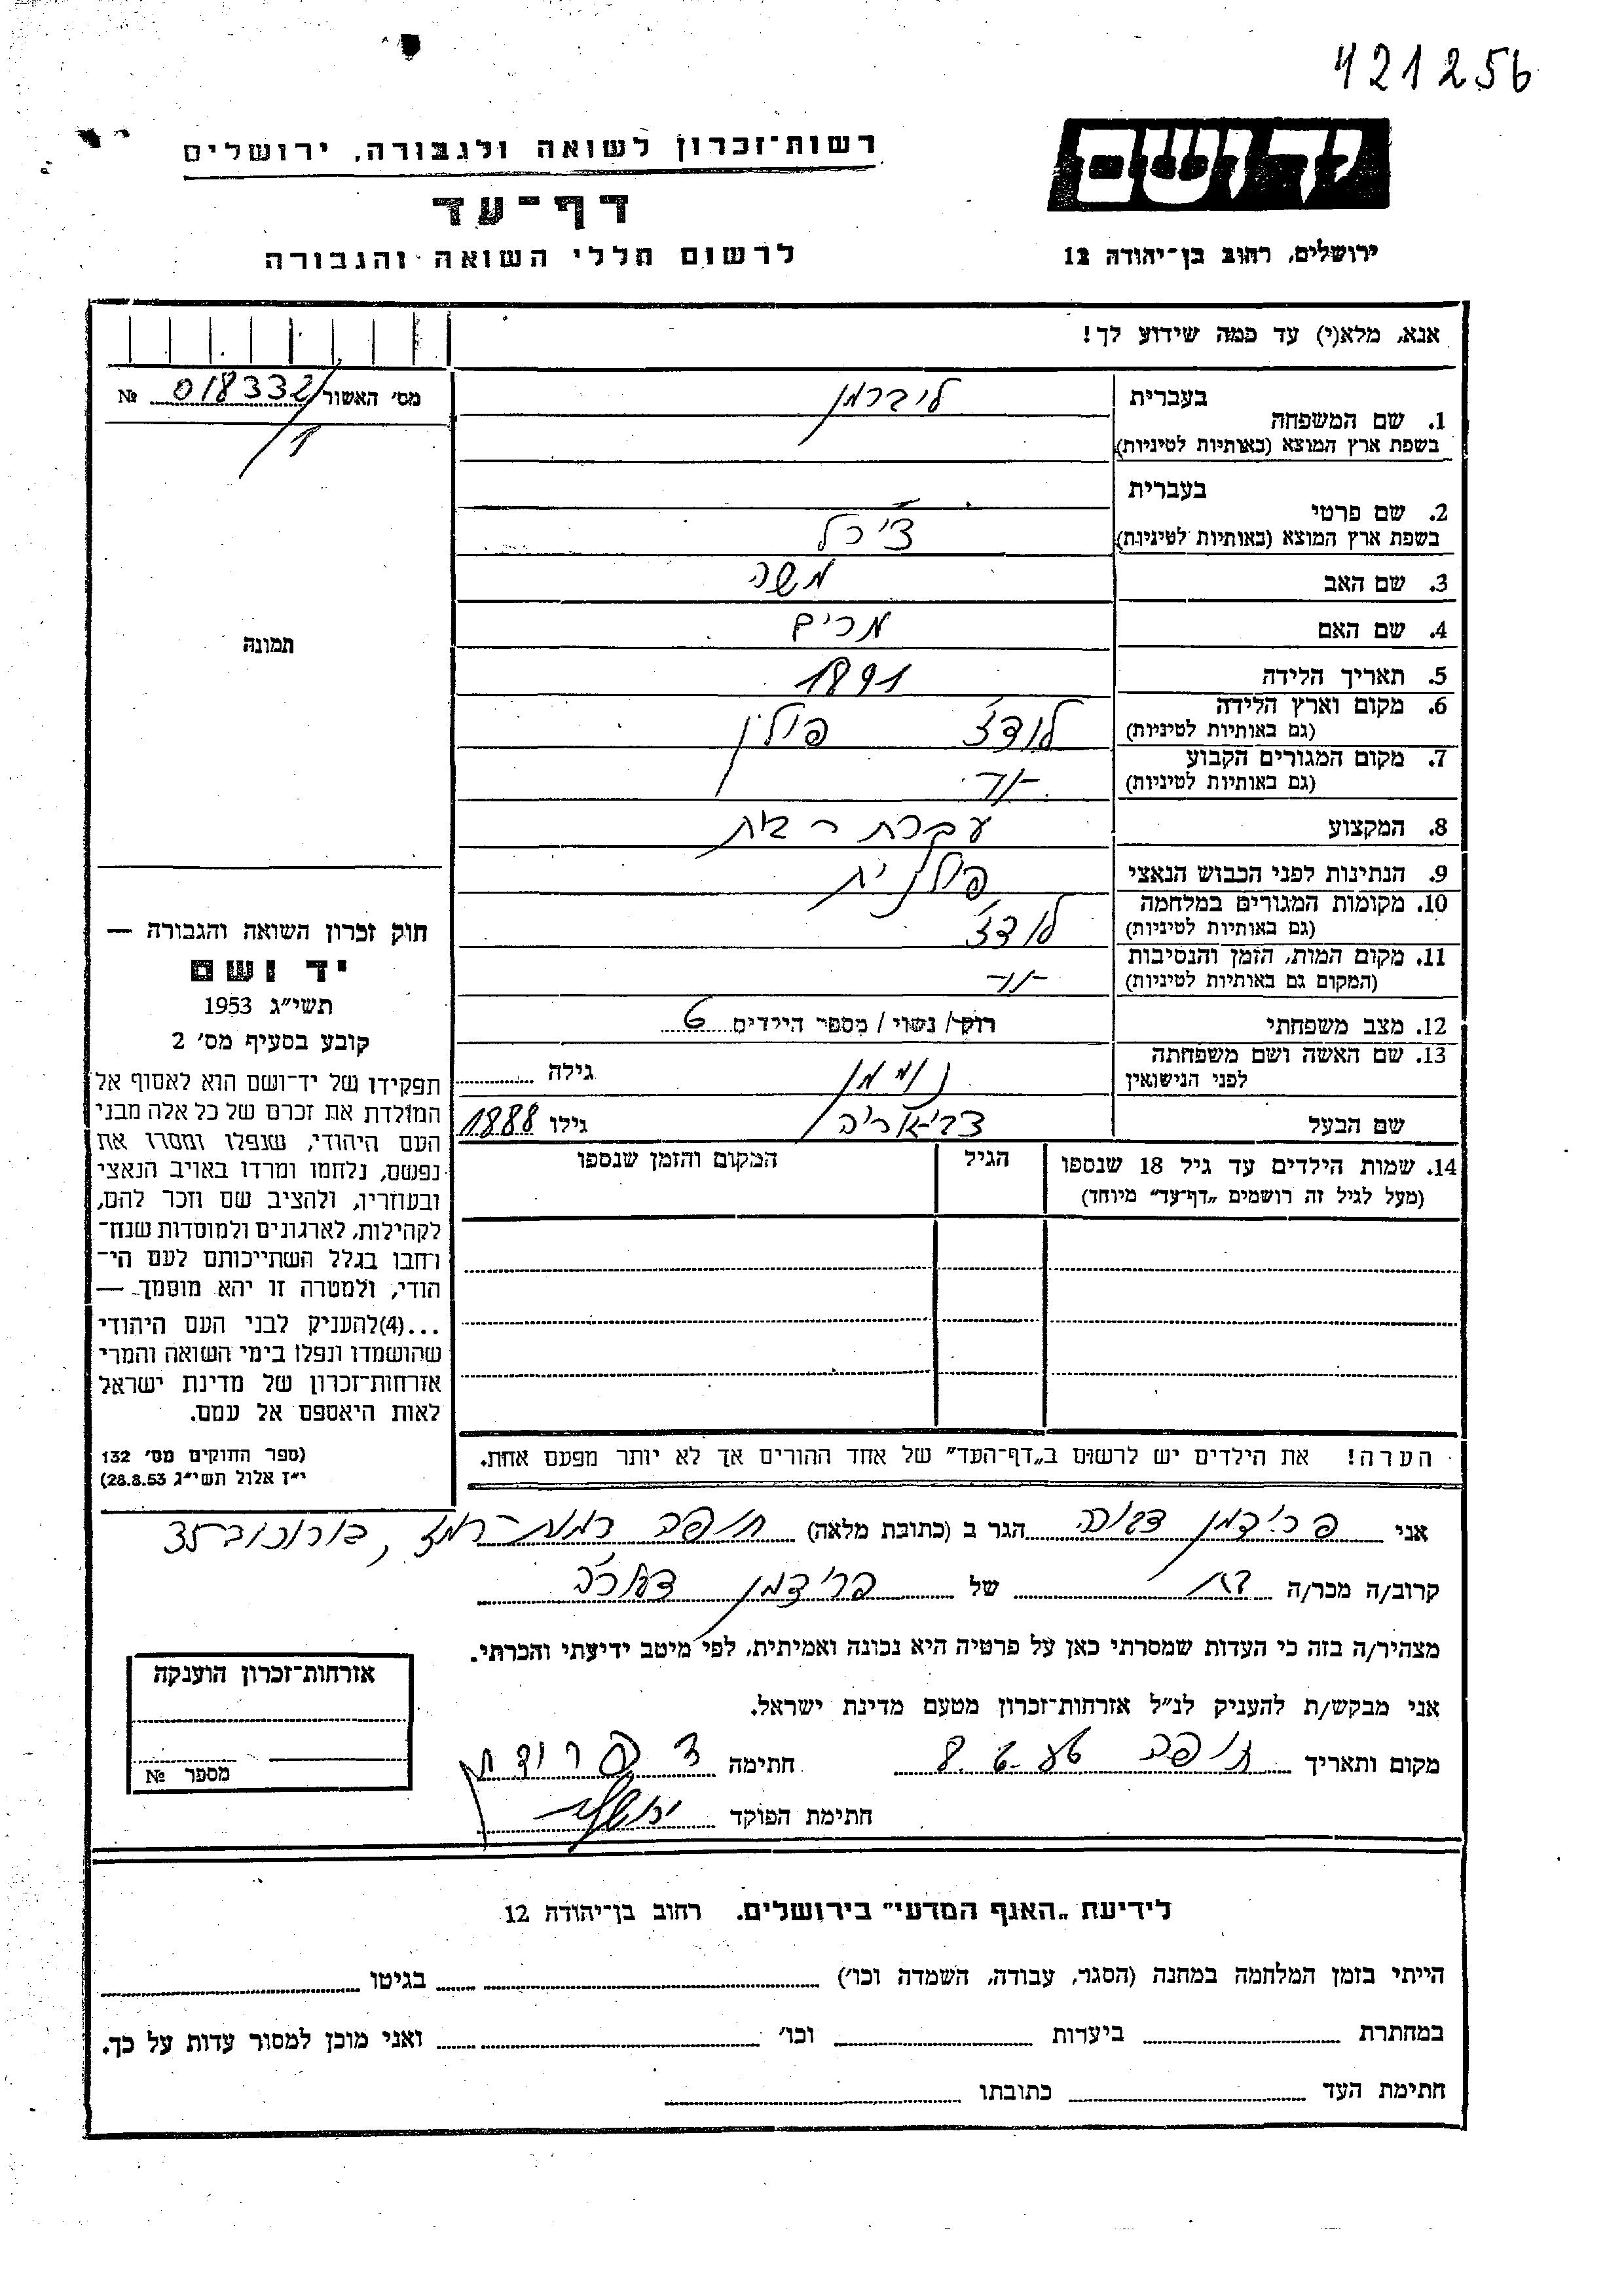 421256
יד ושם
רשות־זכרון לשואה ולגבורה, ירושלים
דף־עד
לרשום חללי השואה והגבורה
ירושלים, רחוב בן־יהודה 12
אנא, מלא(י) עד כמה שידוע לך!
מס' האשור 018332 №
1. שם המשפחה
בעברית ליברמן
בשפת ארץ המוצא (באותיות לטיניות)
2. שם פרטי
בעברית
בשפת ארץ המוצא (באותיות לטיניות)
3. שם האב משה
4. שם האם מרים
5. תאריך הלידה 1891
6. מקום וארץ הלידה לודז' פולין
(גם באותיות לטיניות)
7. מקום המגורים הקבוע -"-
(גם באותיות לטיניות)
8. המקצוע עקרת בית
9. הנתינות לפני הכבוש הנאצי פולנית
10. מקומות המגורים במלחמה לודז'
(גם באותיות לטיניות)
11. מקום המות, הזמן והנסיבות -"-
(המקום גם באותיות לטיניות)
12. מצב משפחתי רוק / נשוי / מספר הילדים 6
13. שם האשה ושם משפחתה נוימן גילה
לפני הנישואין
שם הבעל צבי אריה גילו 1888
14. שמות הילדים עד גיל 18 שנספו הגיל המקום והזמן שנספו
(מעל לגיל זה רושמים „דף־עד" מיוחד)
הערה! את הילדים יש לרשום ב„דף־העד" של אחד ההורים אך לא יותר מפעם אחת.
תמונה
חוק זכרון השואה והגבורה —
יד ושם
תשי"ג 1953
קובע בסעיף מס' 2
תפקידו של יד־ושם הוא לאסוף אל
המולדת את זכרם של כל אלה מבני
העם היהודי, שנפלו ומסרו את
נפשם, נלחמו ומרדו באויב הנאצי
ובעוזריו, ולהציב שם וזכר להם,
לקהילות, לארגונים ולמוסדות שנח־
רחבו בגלל השתייכותם לעם הי־
הודי, ולמטרה זו יהא מוסמך —
...(4)להעניק לבני העם היהודי
שהושמדו ונפלו בימי השואה והמרי
אזרחות־זכרון של מדינת ישראל
לאות היאספם אל עמם.
(ספר החוקים מס' 132
י"ז אלול תשי"ג 28.8.53)
אני פרידמן דבורה הגר ב (כתובת מלאה) חיפה רמת-רמז,
קרוב/ה מכר/ה בת של פרידמן
מצהיר/ה בזה כי העדות שמסרתי כאן על פרטיה היא נכונה ואמיתית, לפי מיטב ידיעתי והכרתי.
אני מבקש/ת להעניק לנ"ל אזרחות־זכרון מטעם מדינת ישראל.
מקום ותאריך חיפה חתימה
חתימת הפוקד
אזרחות־זכרון הוענקה
מספר №
לידיעת „האגף המדעי" בירושלים. רחוב בן־יהודה 12
הייתי בזמן המלחמה במחנה (הסגר, עבודה, השמדה וכו') בגיטו
במחתרת ביערות וכו' ואני מוכן למסור עדות על כך.
חתימת העד כתובתו